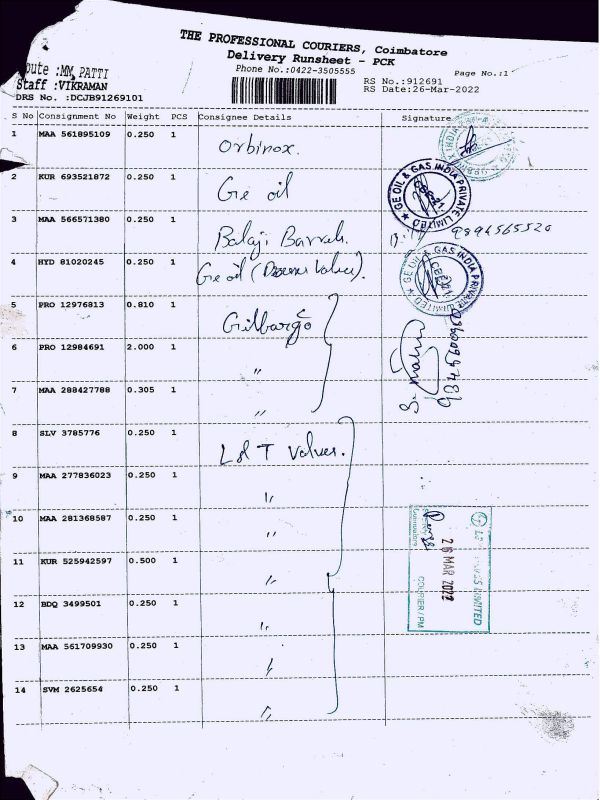 THE PROFESSIONAL COURIERS, Coimbatore
Delivery Runsheet - PCK
Phone No.:0422-3505555
Page No.:1
oute :MM PATTI
Staff :VIKRAMAN
DRS No. :DCJB91269101
RS No.:912691
RS Date:26-Mar-2022
S No Consignment No Weight PCS Consignee Details Signature
1 MAA 561895109 0.250 1 Orbinox.
2 KUR 693521872 0.250 1 Ge oil
GE OIL & GAS INDIA PRIVATE LIMITED
3 MAA 566571380 0.250 1 Balaji
4 HYD 81020245 0.250 1 Ge oil
GE OIL & GAS INDIA PRIVATE LIMITED
5 PRO 12976813 0.810 1 Gilbarco
6 PRO 12984691 2.000 1 "
7 MAA 288427788 0.305 1 "
8 SLV 3785776 0.250 1 L & T Valves.
9 MAA 277836023 0.250 1 "
10 MAA 281368587 0.250 1 "
26 MAR 2022
COURIER / PM
11 KUR 525942597 0.500 1 "
12 BDQ 3499501 0.250 1 "
13 MAA 561709930 0.250 1 "
14 SVM 2625654 0.250 1 "